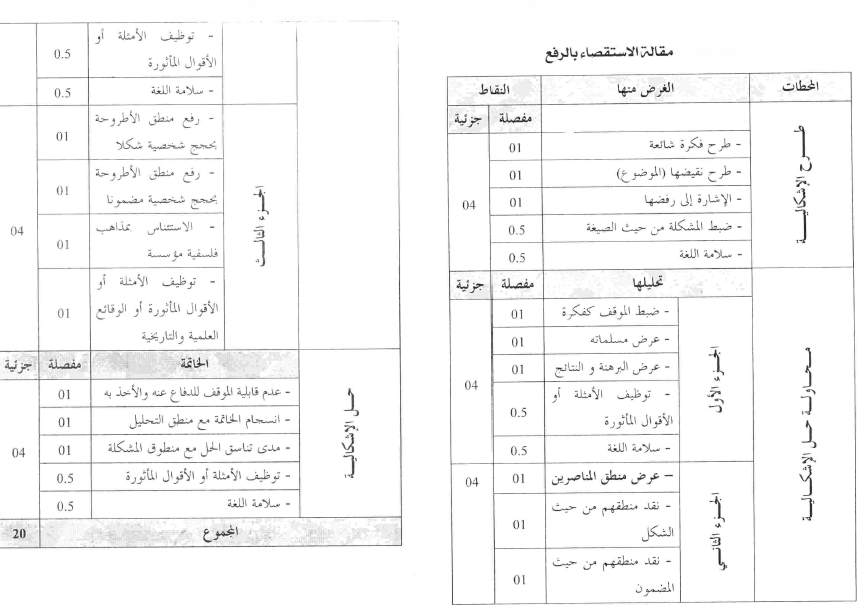 مقالة الاستقصاء بالرفع
المحطات
الغرض منها
النقاط
مفصلة
جزئية
طرح الإشكالية
- طرح فكرة شائعة
01
- طرح نقيضها (الموضوع)
01
- الإشارة إلى رفضها
01
- ضبط المشكلة من حيث الصيغة
0.5
- سلامة اللغة
0.5
04
محاولة حل الإشكالية
تحليلها
مفصلة
جزئية
الجزء الأول
- ضبط الموقف كفكرة
01
- عرض مسلماته
01
- عرض البرهنة و النتائج
01
- توظيف الأمثلة أو
الأقوال المأثورة
0.5
- سلامة اللغة
0.5
04
الجزء الثاني
– عرض منطق المناصرين
01
04
- نقد منطقهم من حيث
الشكل
01
- نقد منطقهم من حيث
المضمون
01
- توظيف الأمثلة أو
الأقوال المأثورة
0.5
- سلامة اللغة
0.5
الجزء الثالث
- رفع منطق الأطروحة
بحجج شخصية شكلا
01
- رفع منطق الأطروحة
بحجج شخصية مضمونا
01
- الاستئناس بمذاهب
فلسفية مؤسسة
01
- توظيف الأمثلة أو
الأقوال المأثورة أو الوقائع
العلمية والتاريخية
01
04
حل الإشكالية
الخاتمة
مفصلة
جزئية
- عدم قابلية الموقف للدفاع عنه والأخذ به
01
- انسجام الخاتمة مع منطق التحليل
01
- مدى تناسق الحل مع منطوق المشكلة
01
- توظيف الأمثلة أو الأقوال المأثورة
0.5
- سلامة اللغة
0.5
04
المجموع
20